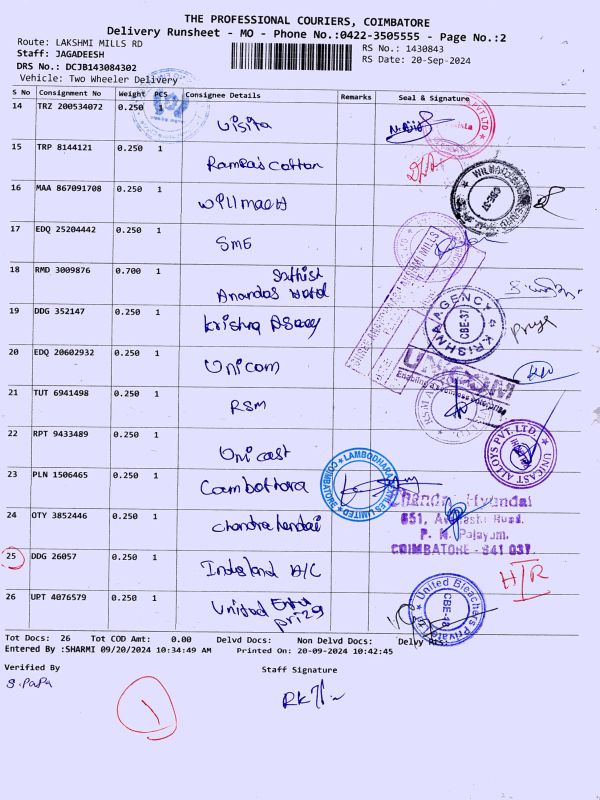 THE PROFESSIONAL COURIERS, COIMBATORE
Delivery Runsheet - MO - Phone No.:0422-3505555 - Page No.:2
Route: LAKSHMI MILLS RD
Staff: JAGADEESH
DRS No.: DCJB143084302
Vehicle: Two Wheeler Delivery
RS No.: 1430843
RS Date: 20-Sep-2024
S No Consignment No Weight PCS Consignee Details Remarks Seal & Signature
14 TRZ 200534072 0.250 1 Visita
15 TRP 8144121 0.250 1 Ramrajs Cotton
16 MAA 867091708 0.250 1
17 EDQ 25204442 0.250 1 SMS
18 RMD 3009876 0.700 1 Sathish
Anandas
19 DDG 352147 0.250 1 Krishna
KRISHNA AGENCY CBE-37
Priya
20 EDQ 20602932 0.250 1 Unicom
UNICOM
21 TUT 6941498 0.250 1 RSM
22 RPT 9433489 0.250 1 Unicast
UNICAST ALLOYS PVT. LTD.
23 PLN 1506465 0.250 1
24 OTY 3852446 0.250 1
Chandra Hyundai
651, Avinashi Road,
P. N. Palayam,
COIMBATORE - 641 037.
25 DDG 26057 0.250 1 H/R
26 UPT 4076579 0.250 1 United
United Bleachers Private CBE-48
Tot Docs: 26 Tot COD Amt: 0.00 Delvd Docs: Non Delvd Docs: Delvy Hrs:
Entered By :SHARMI 09/20/2024 10:34:49 AM Printed On: 20-09-2024 10:42:45
Verified By Staff Signature
S. PaPa
1